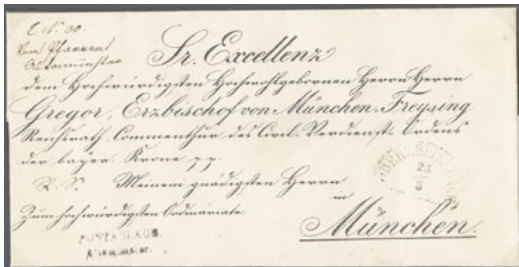 E. N. 30.
Vom Pfarramt
Altomünster
Sr. Excellenz
dem Hochwürdigsten Hochwohlgebornen Herrn Herrn
Gregor, Erzbischof von München-Freysing
Reichsrath, Commenthur des Civil-Verdienst-Ordens
der bayer. Krone p.p.
R. S. Meinem gnädigsten Herrn
in
Zum hochwürdigsten Ordinariate.
München.
POSTABLAGE
Altomünster.
25